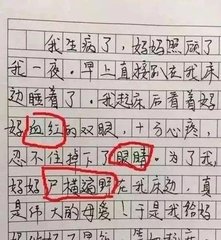 我生病了，妈妈照顾了
我一夜。早上直接趴在我床
边睡着了。我起床后看着妈
妈血红的双眼，十分心疼，
忍不住掉下了眼睛。为了我
妈妈尸横遍野在我床边，真
是伟大的母爱！于是我给妈